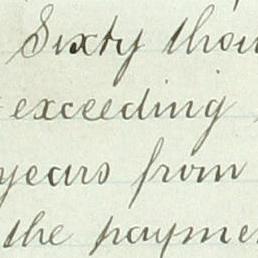 Sixty thou
exceeding
years from
the paymen